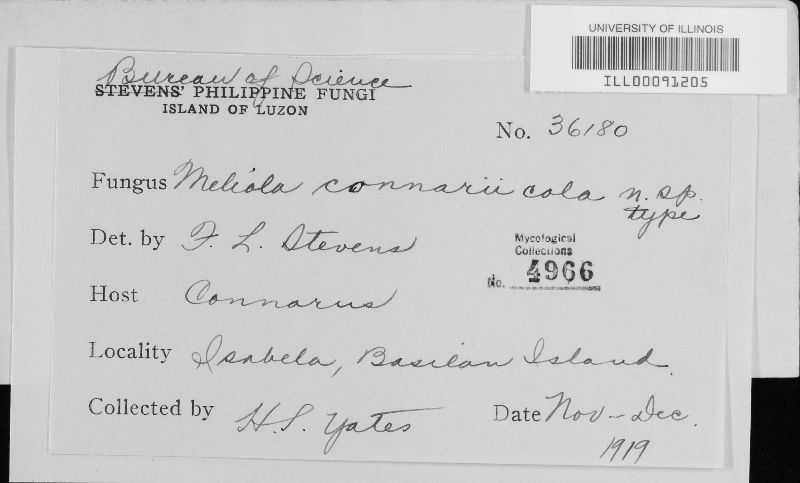 UNIVERSITY OF ILLINOIS
ILL00091205
Bureau of Science
STEVENS' PHILIPPINE FUNGI
ISLAND OF LUZON
No. 36180
Fungus Meliola connariicola n. sp.
type
Det. by F. L. Stevens
Mycological
Collections
No. 4966
Host Connarus
Locality Isabela, Basilan Island.
Collected by H.S. Yates Date Nov-Dec.
1919